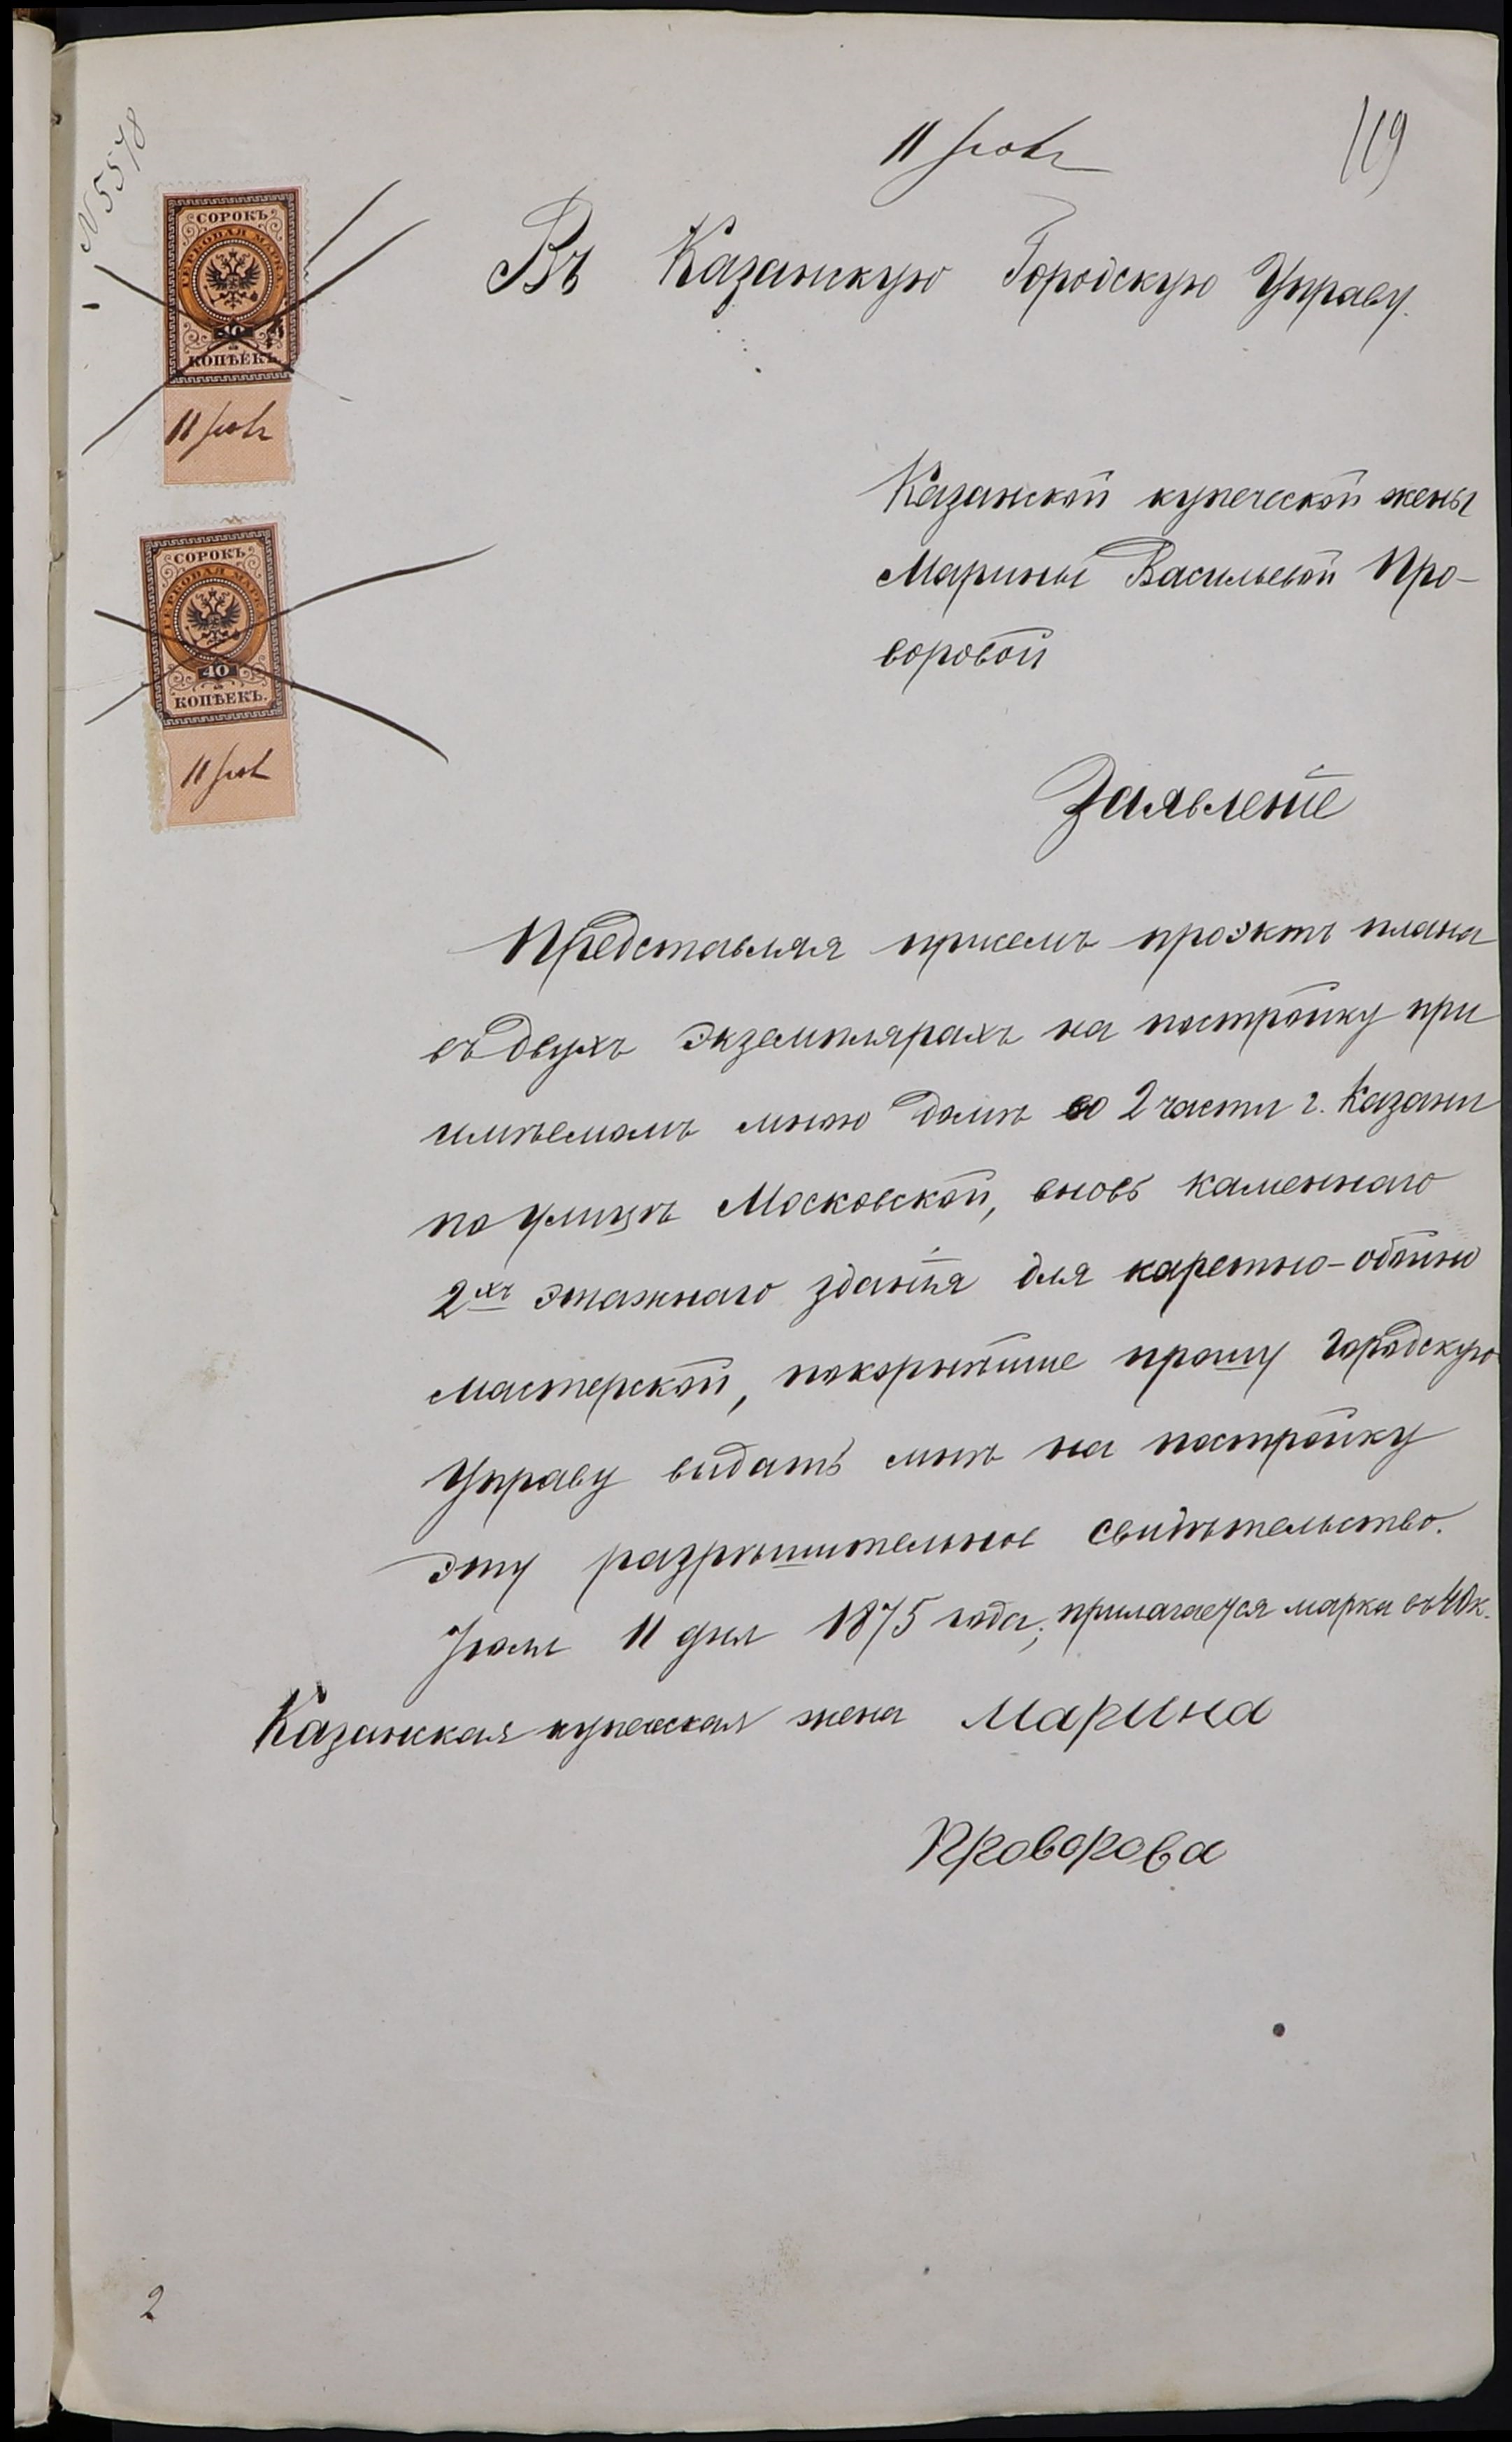 N 5578
11 Іюля
119
СОРОКЪ
ГЕРБОВАЯ МАРКА
40
КОПѢЕКЪ.
11 Іюля
СОРОКЪ
ГЕРБОВАЯ МАРКА
40
КОПѢЕКЪ.
11 Іюл
Въ Казанскую Городскую Управу.
Казанской купеческой жены
Марины Васильевой Про-
воровой
Заявленіе
Представляя присемъ проэктъ плана
въ двухъ экземплярахъ на постройку при
имѣемомъ мною домѣ во 2 части г. Казани
по улицѣ Московской, вновь каменнаго
2хъ этажнаго зданія для каретно-обойно
мастерской, покорнѣйше прошу Городскую
Управу видать мнѣ на постройку
эту разрѣшительное свидѣтельство.
Іюля 11 дня 1875 года; прилагается марка въ 40 к.
Казанская купеческая жена Марина
Проворова
2